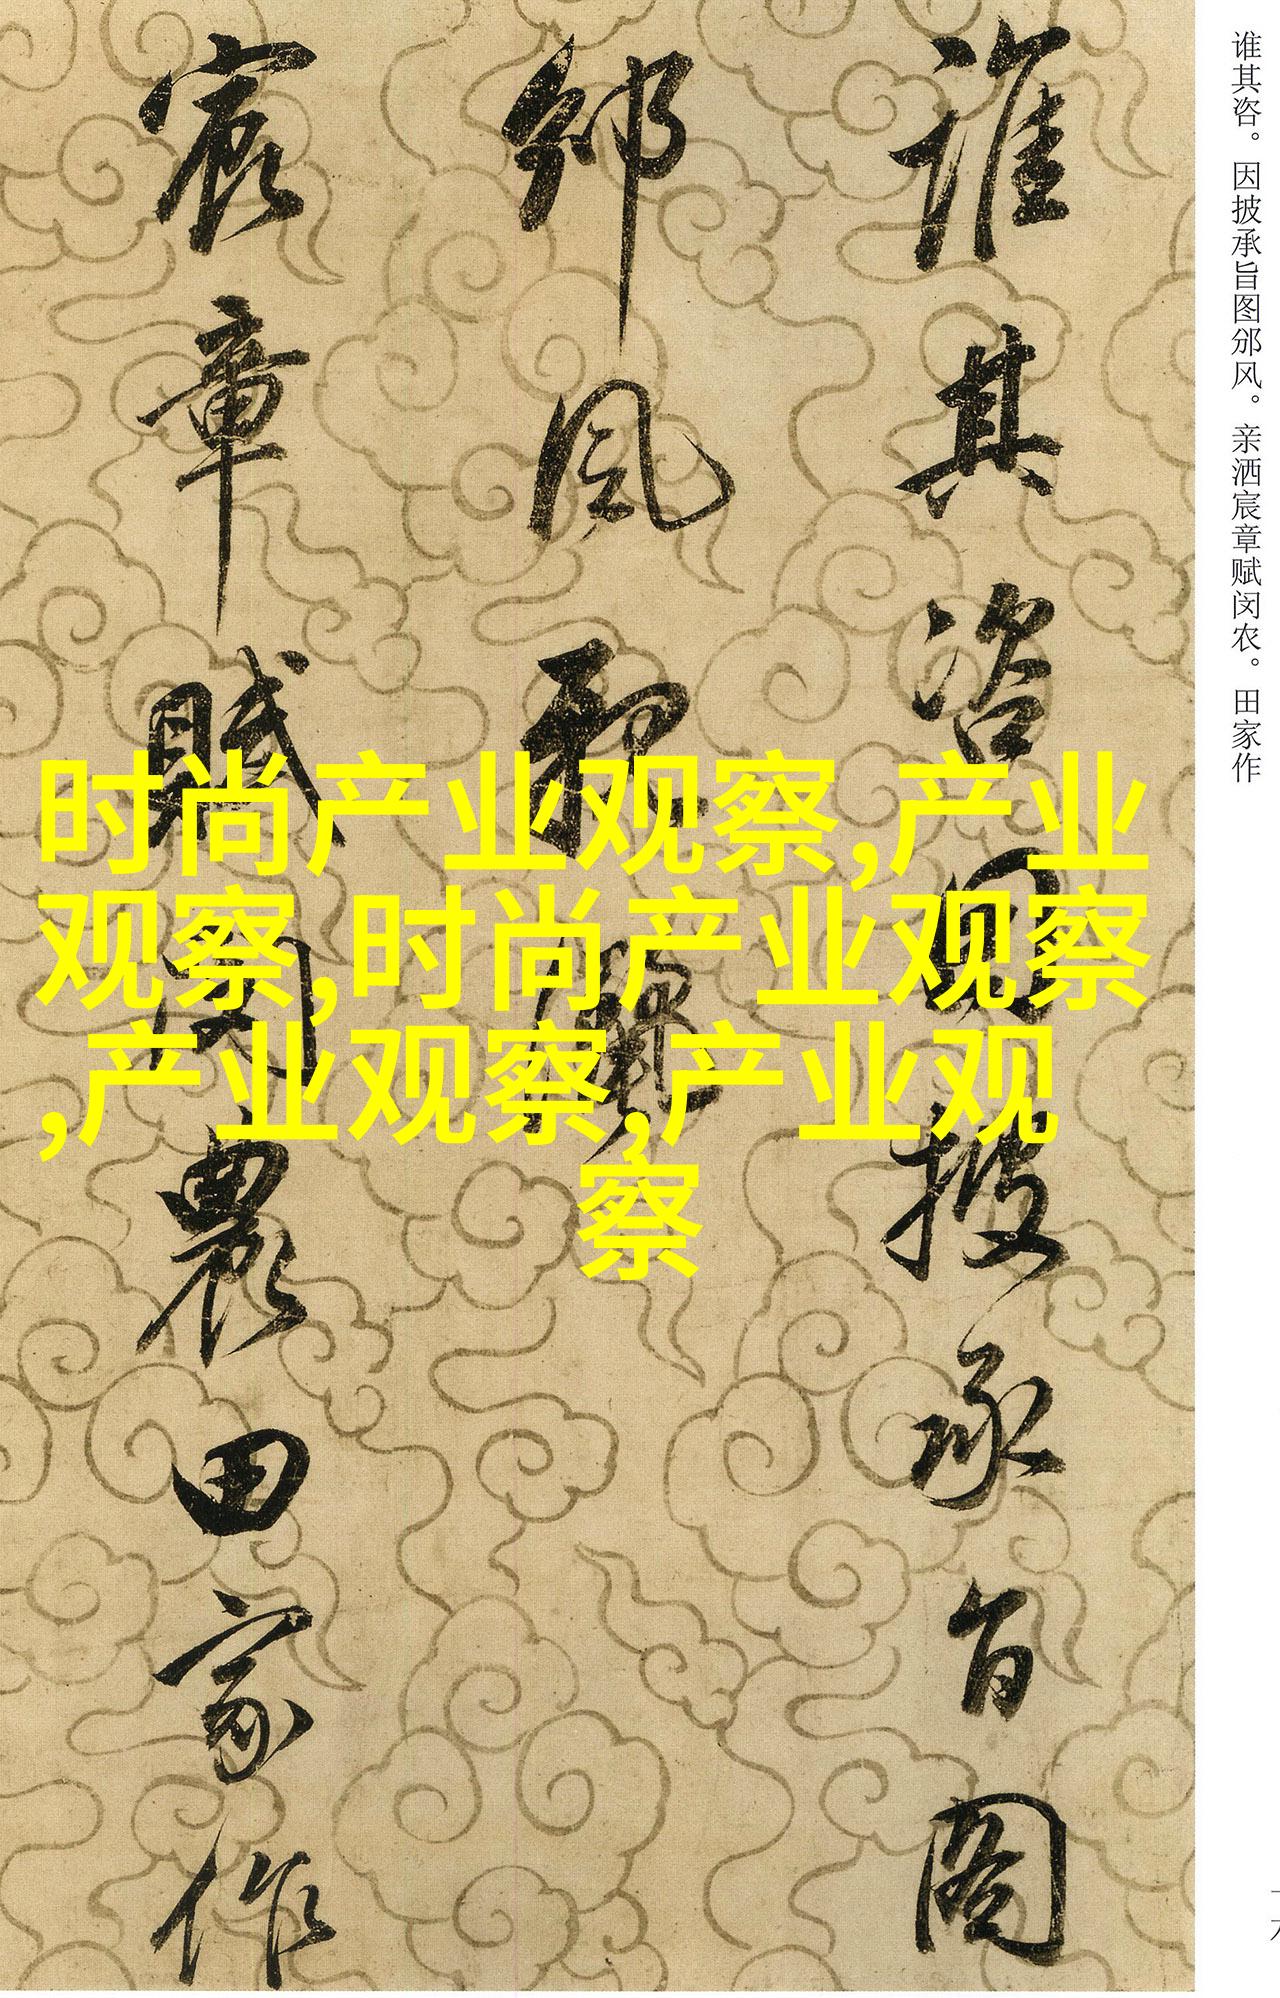 谁其咨。因披承旨图邠风。亲洒宸章赋闵农。田家作
誰其咨因披承旨圖
邠風親灑
宸章賦閔農田家作
时尚产业观察,产业
观察,时尚产业观察
,产业观察,产业观
察